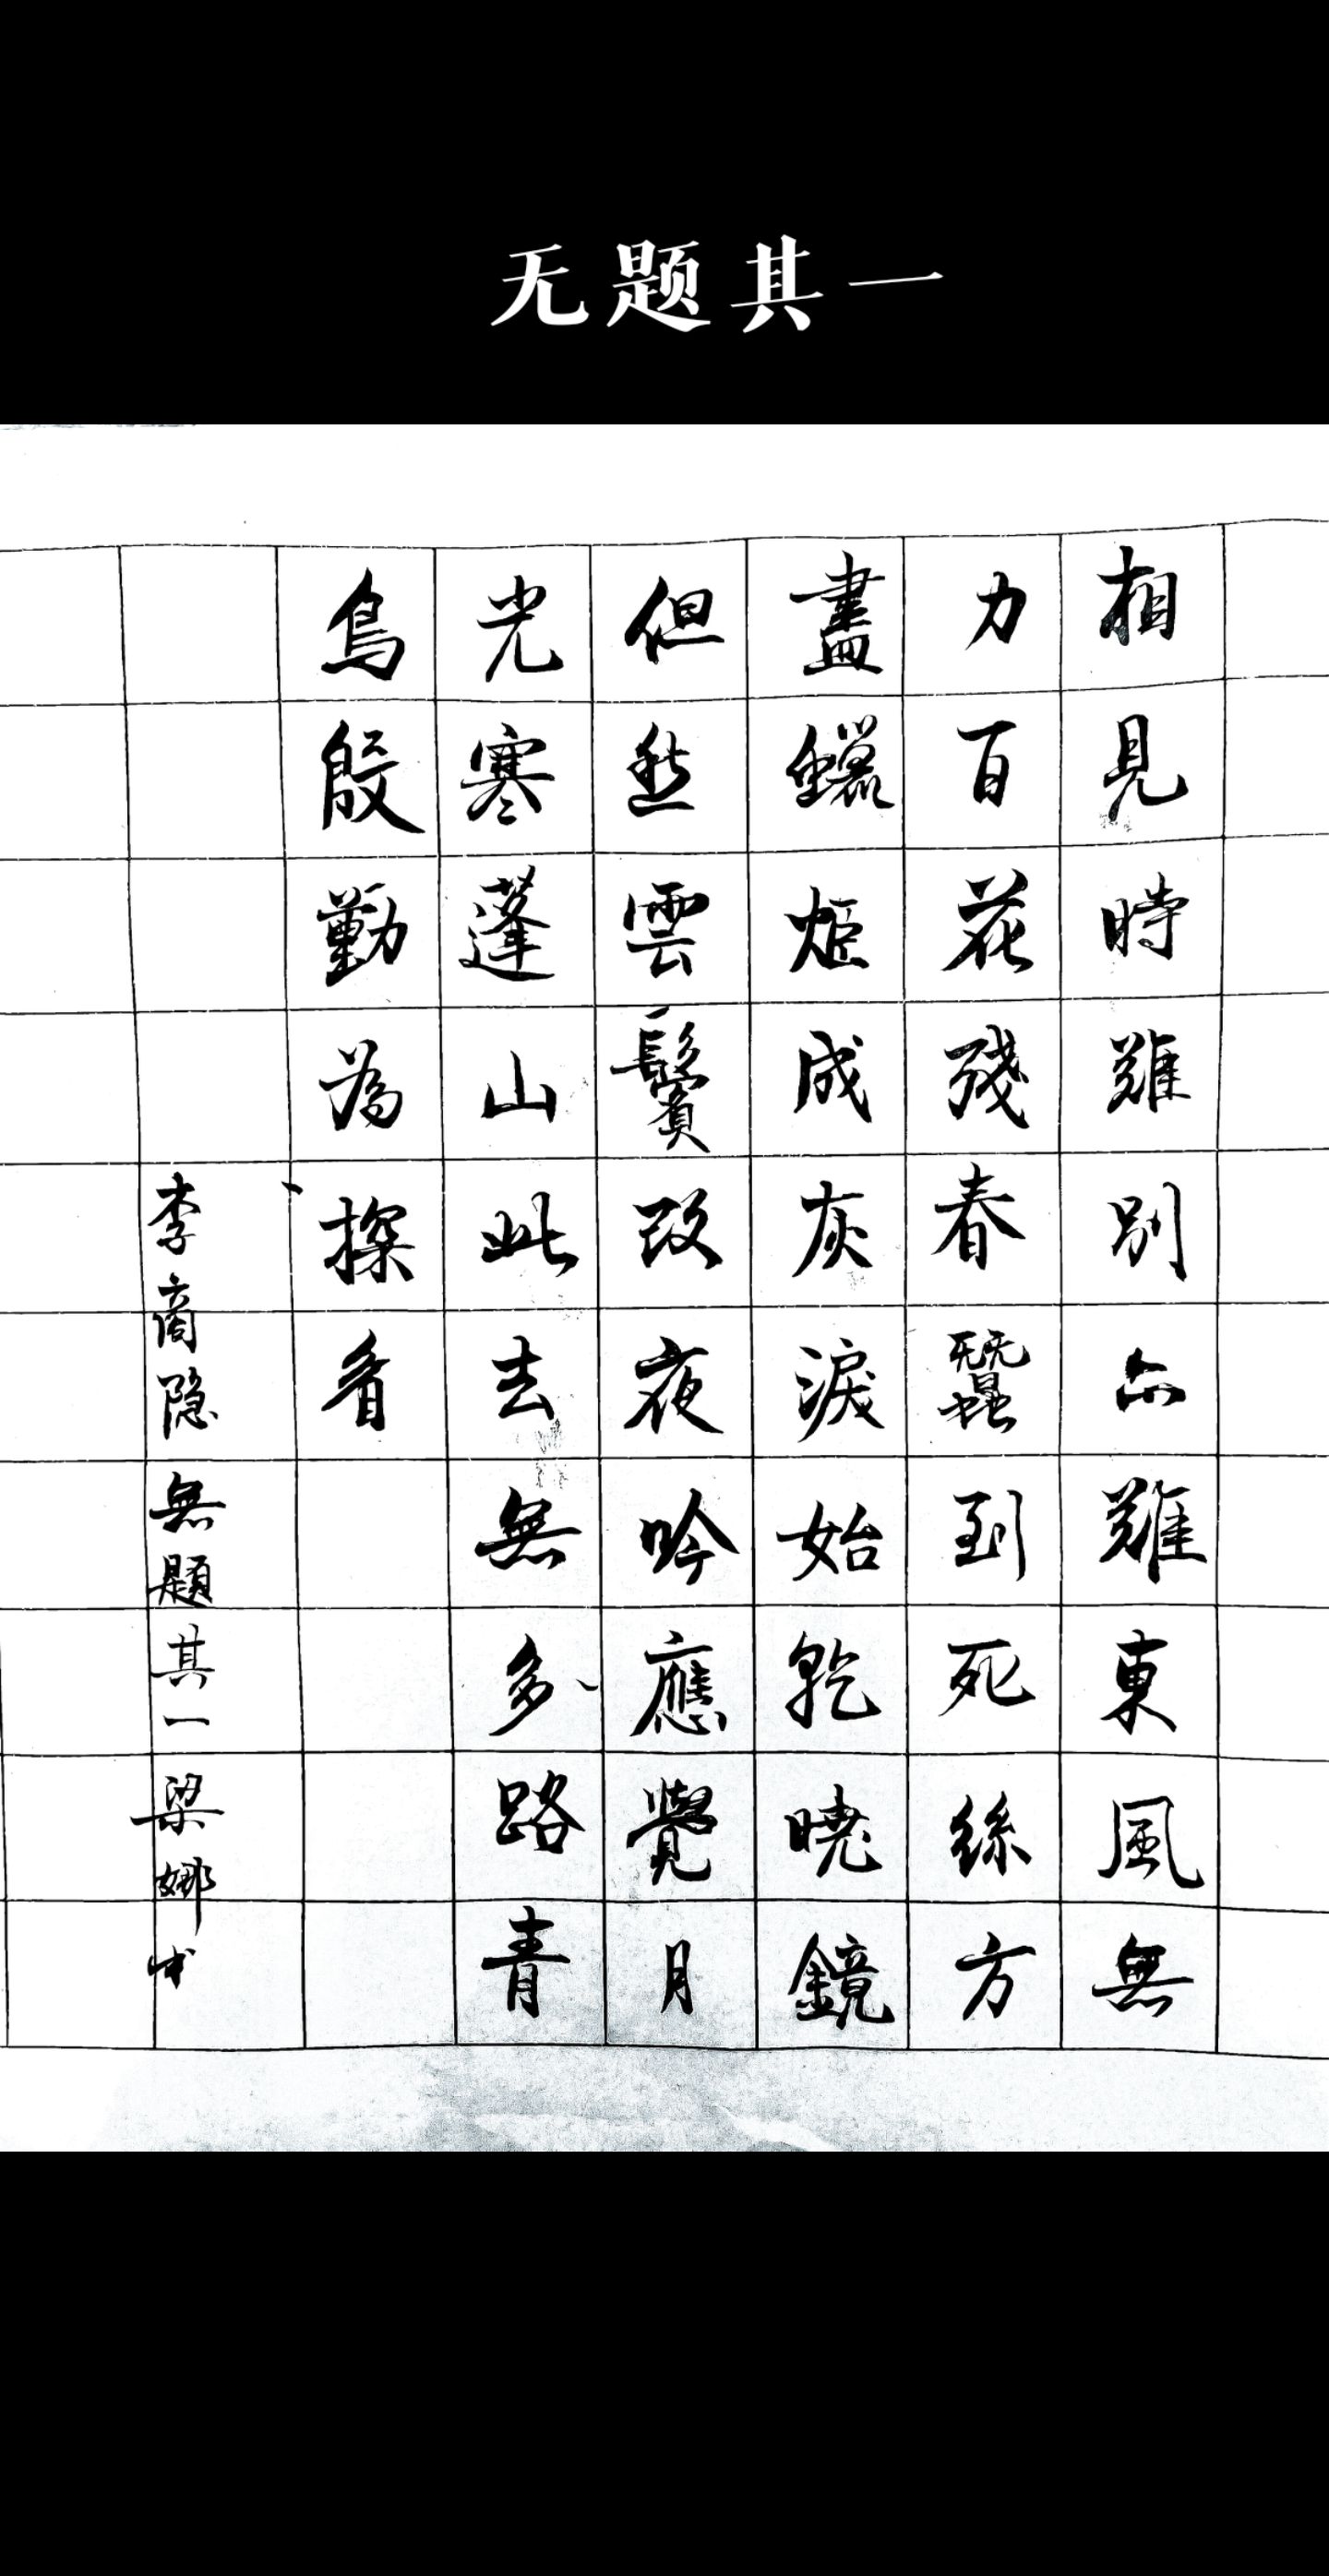 无题其一
相見時難別亦難東風無
力百花殘春蠶到死絲方
盡蠟炬成灰淚始乾曉鏡
但愁雲鬢改夜吟應覺月
光寒蓬山此去無多路青
鳥殷勤為探看
李商隐無題其一梁娜书